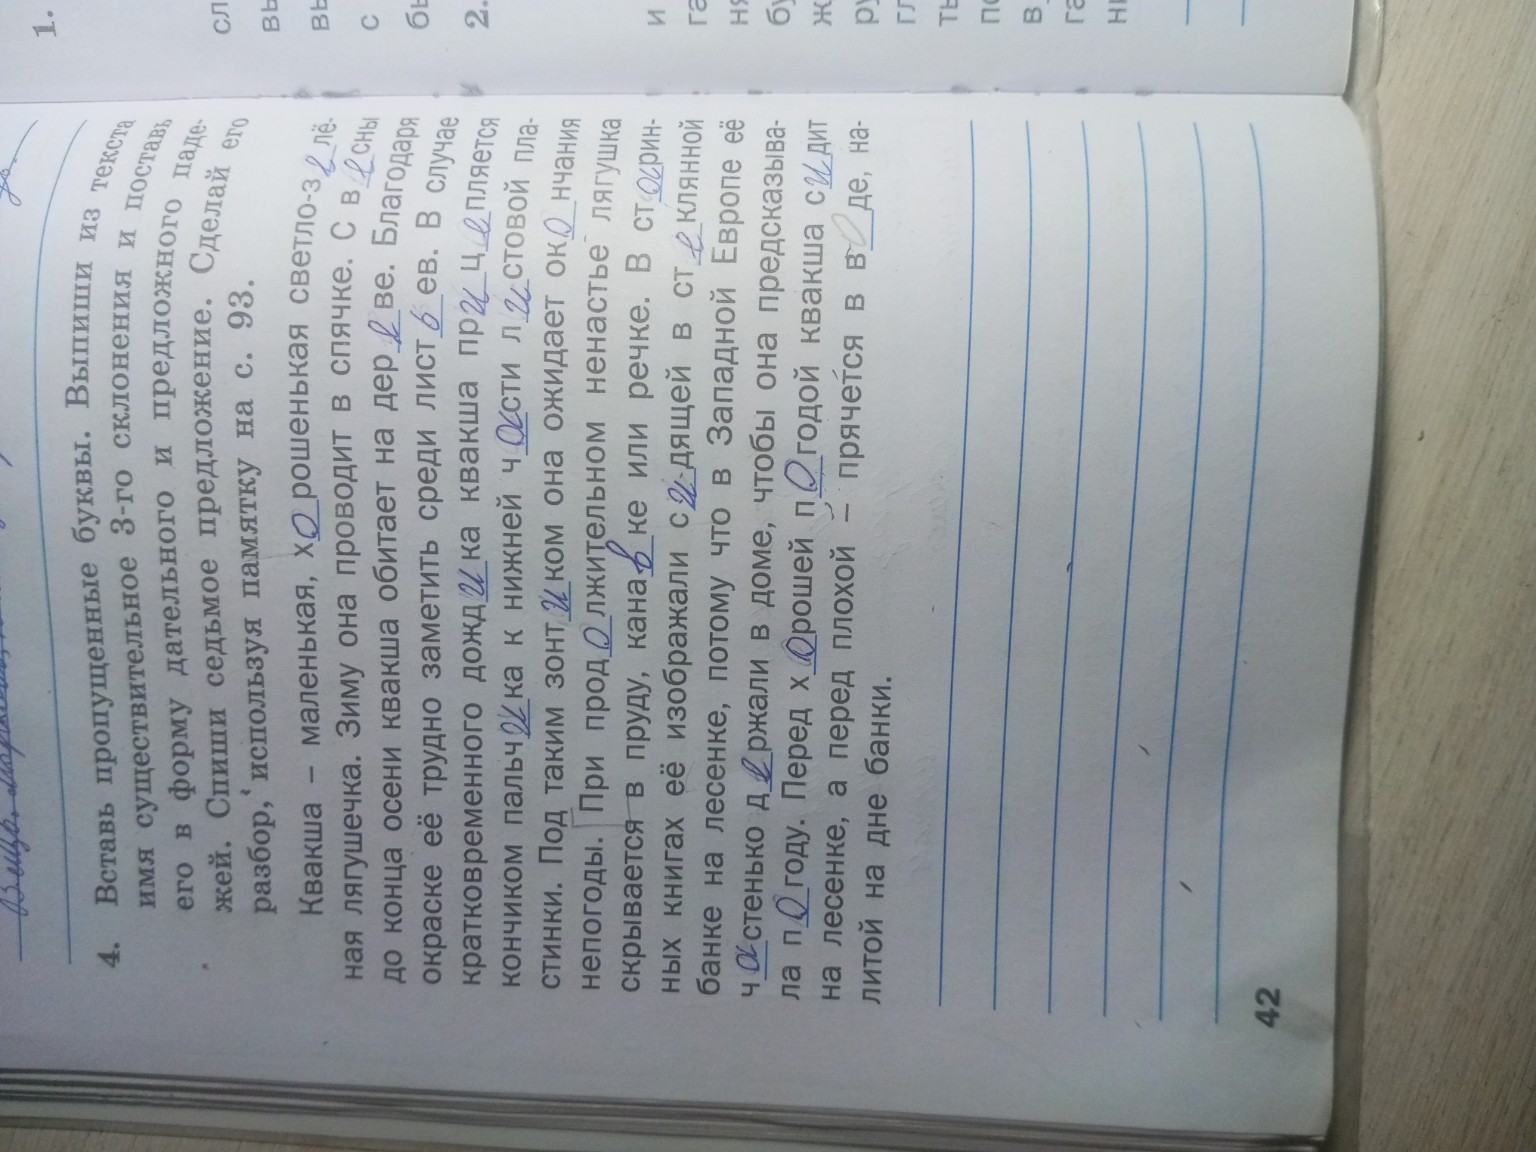 4. Вставь пропущенные буквы. Выпиши из текста
имя существительное 3-го склонения и поставь
его в форму дательного и предложного паде-
жей. Спиши седьмое предложение. Сделай его
разбор, используя памятку на с. 93.
Квакша – маленькая, хорошенькая светло-зелё-
ная лягушечка. Зиму она проводит в спячке. С весны
до конца осени квакша обитает на дереве. Благодаря
окраске её трудно заметить среди листьев. В случае
кратковременного дождика квакша прицепляется
кончиком пальчика к нижней части листовой пла-
стинки. Под таким зонтиком она ожидает окончания
непогоды. При продолжительном ненастье лягушка
скрывается в пруду, канавке или речке. В старин-
ных книгах её изображали сидящей в стеклянной
банке на лесенке, потому что в Западной Европе её
частенько держали в доме, чтобы она предсказыва-
ла погоду. Перед хорошей погодой квакша сидит
на лесенке, а перед плохой – прячется в воде, на-
литой на дне банки.
42
1.
сл
вы
вы
с
бы
2.
и
га
ня
бу
ж
ру
гл
ть
по
в
га
ни